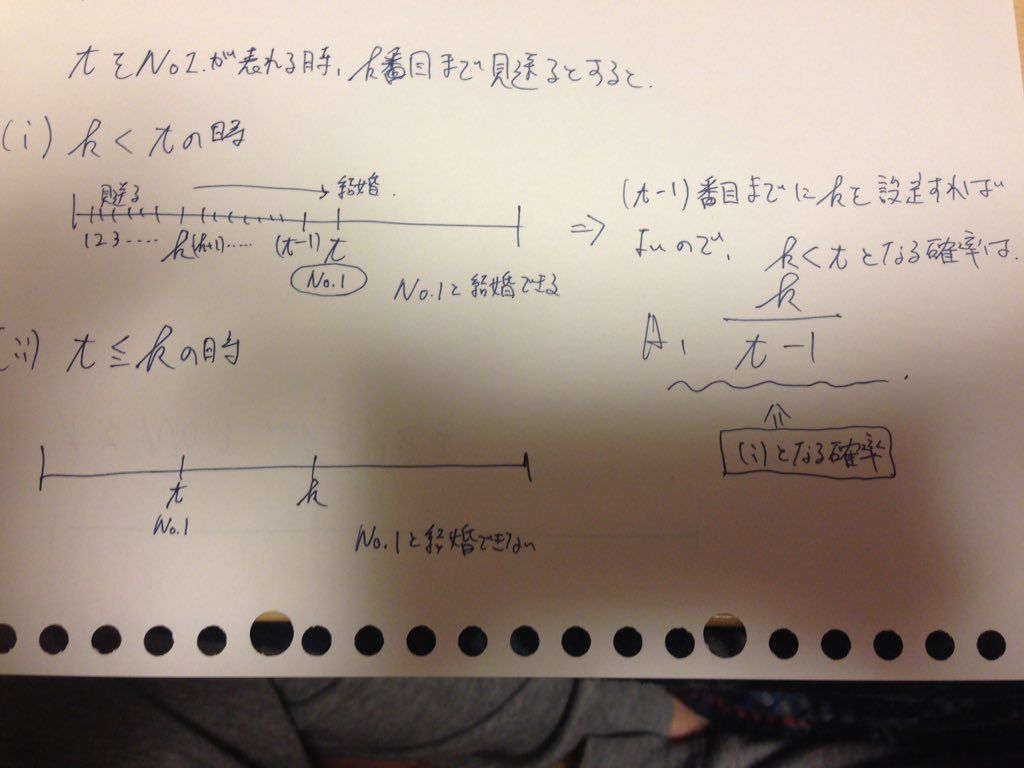 tをNo1.が表れる時、k番目まで見送るとすると.
(i) k < t の時
見送る
結婚.
1 2 3 ‥‥ k (k+1)‥‥ (t-1) t
No.1
No.1と結婚できる
⇒ (t-1)番目までにkを設定すれば
よいので、 k<tとなる確率は.
A, k/(t-1) .
⇑
(i)となる確率
(ii) t ≦ k の時
t k
No.1
No.1と結婚できない